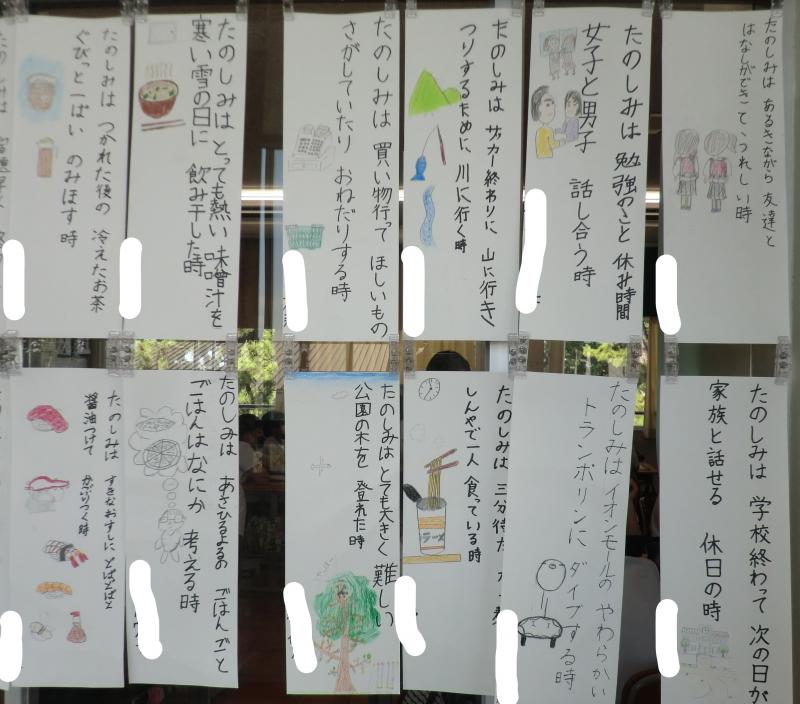 たのしみは あるきながら 友達と
はなしができて、うれしい時
たのしみは 勉強のこと 休み時間
女子と男子 話し合う時
たのしみは サッカー終わりに 山に行き
つりするために、川に行く時
たのしみは 買い物行って ほしいもの
さがしていたり おねだりする時
たのしみは とっても熱い 味噌汁を
寒い雪の日に 飲み干した時
たのしみは つかれた後の 冷えたお茶
ぐびっと一ぱい のみほす時
たのしみは
たのしみは 学校終わって 次の日が
家族と話せる 休日の時
たのしみは イオンモールの やわらかい
トランポリンに ダイブする時
たのしみは 三分待た
しんやで一人 食っている時
ラーメン
たのしみは とても大きく 難しい
公園の木を 登れた時
たのしみは あさひるよるの ごはんごと
ごはんはなにか 考える時
たのしみは すきなおすしに どばどばと
醤油つけて かぶりつく時